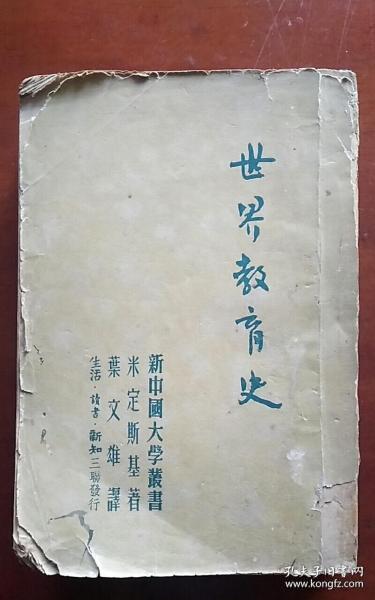 世界教育史
新中國大學叢書
米定斯基著
葉文雄譯
生活·讀書·新知三聯發行
孔夫子旧书网
kongfz.com